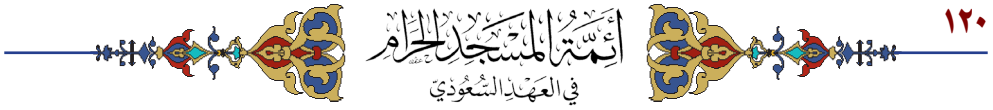 ١٢٠
أَئِمَّةُ المَسْجِدِ الحَرَامِ
في العَهْدِ السُّعُودِيّ